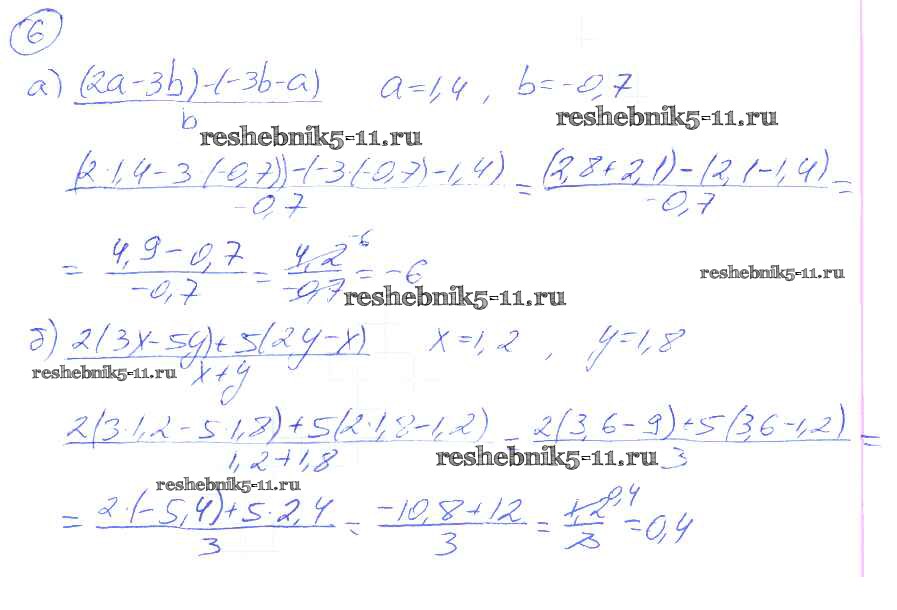 6
а) (2a-3b)-(-3b-a) / b a=1,4 , b=-0,7
reshebnik5-11.ru
reshebnik5-11.ru
(2·1,4-3(-0,7))-(-3·(-0,7)-1,4) / -0,7 = (2,8+2,1)-(2,1-1,4) / -0,7 =
= 4,9-0,7 / -0,7 = 4,2 / -0,7 -6 = -6
reshebnik5-11.ru
reshebnik5-11.ru
б) 2(3x-5y)+5(2y-x) / x+y x=1,2 , y=1,8
reshebnik5-11.ru
2(3·1,2-5·1,8)+5(2·1,8-1,2) / 1,2+1,8 = 2(3,6-9)+5(3,6-1,2) / 3 =
reshebnik5-11.ru
reshebnik5-11.ru
= 2·(-5,4)+5·2,4 / 3 = -10,8+12 / 3 = 1,2 / 3 0,4 = 0,4